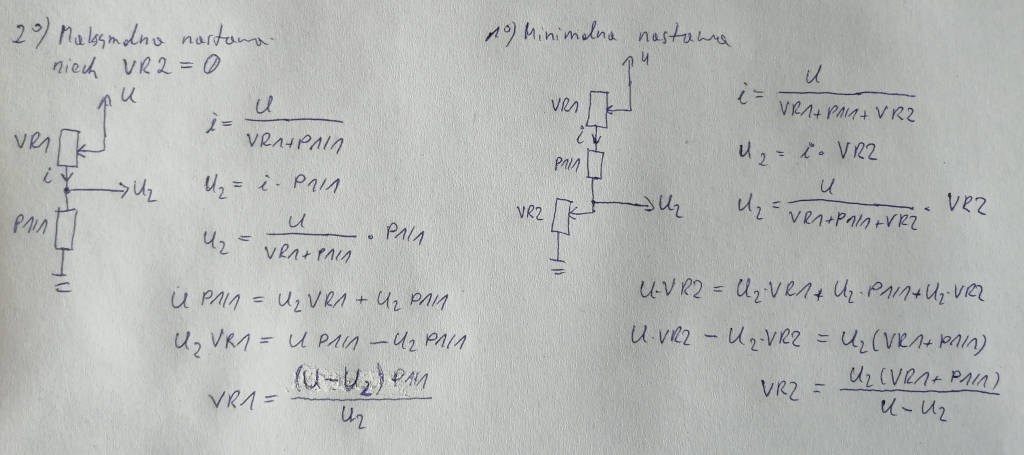 2°) Maksymalna nastawa
niech VR2 = 0
U
VR1
i
U₂
P1/1
i = U / (VR1+P1/1)
U₂ = i · P1/1
U₂ = U / (VR1+P1/1) · P1/1
U P1/1 = U₂ VR1 + U₂ P1/1
U₂ VR1 = U P1/1 − U₂ P1/1
VR1 = (U−U₂) P1/1 / U₂
1°) Minimalna nastawa
U
VR1
i
P1/1
VR2
U₂
i = U / (VR1+P1/1+VR2)
U₂ = i · VR2
U₂ = U / (VR1+P1/1+VR2) · VR2
U·VR2 = U₂·VR1 + U₂·P1/1 + U₂·VR2
U·VR2 − U₂·VR2 = U₂(VR1+P1/1)
VR2 = U₂(VR1+P1/1) / U−U₂